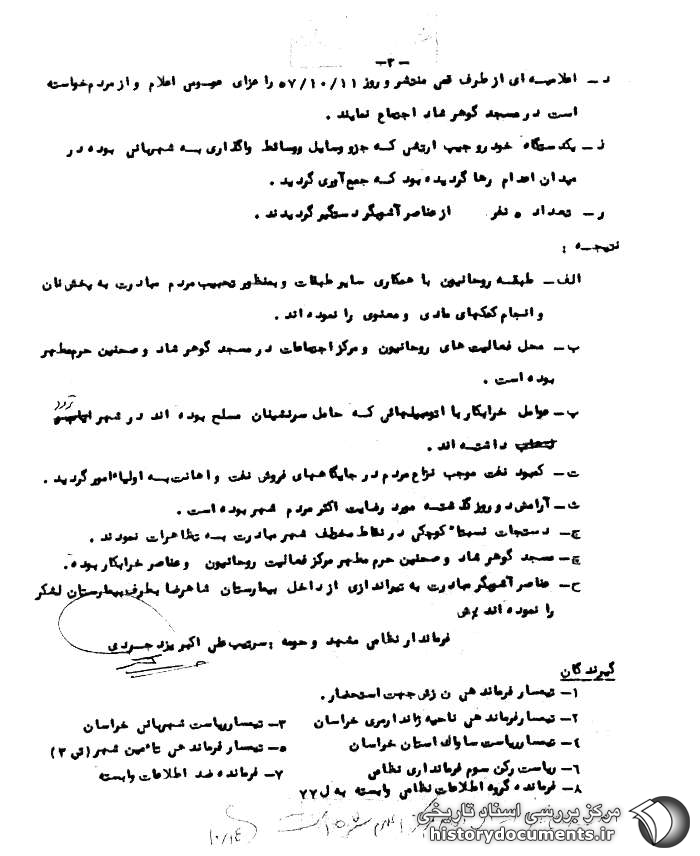 -۳-
د- اعلامیه ای از طرف قمی منتشر و روز ۵۷/۱۰/۱۱ را عزای عمومی اعلام و از مردم خواسته
است در مسجد گوهر شاد اجتماع نمایند.
ذ- یکدستگاه خودرو جیپ ارتشی که جزو وسایل ووسائط واگذاری به شهربانی بوده در
میدان اعدام رها گردیده بود که جمع آوری گردید.
ر- تعداد ۵ نفر از عناصر آشوبگر دستگیر گردیدند.
نتیجه :
الف- طبقه روحانیون با همکاری سایر طبقات و بمنظور تحبیب مردم مبادرت به پخش نان
و انجام کمکهای مادی و معنوی را نموده اند.
ب- محل فعالیت های روحانیون و مرکز اجتماعات در مسجد گوهر شاد و صحنین حرم مطهر
بوده است.
پ- عوامل خرابکار با اتومبیلهائی که حامل سرنشینان مسلح بوده اند در شهر تردد
داشته اند.
ت- کمبود نفت موجب نزاع مردم در جایگاههای فروش نفت و اهانت به اولیاء امور گردید.
ث- آرامش دو روز گذشته مورد رضایت اکثر مردم شهر بوده است.
ج- دستجات نسبتاً کوچکی در نقاط مختلف شهر مبادرت به تظاهرات نمودند.
چ- مسجد گوهر شاد و صحنین حرم مطهر مرکز فعالیت روحانیون و عناصر خرابکار بوده.
ح- عناصر آشوبگر مبادرت به تیراندازی از داخل بیمارستان شاهرضا بطرف بیمارستان لشکر
را نموده اند
فرماندار نظامی مشهد و حومه : سرتیپ علی اکبر یزدجردی
گیرندگان
۱- تیمسار فرماندهی ن زش جهت استحضار.
۲- تیمسار فرماندهی ناحیه ژاندارمری خراسان ۳- تیمسار ریاست شهربانی خراسان
۴- تیمسار ریاست ساواک استان خراسان ۵- تیمسار فرماندهی تامین شهر (تی ۳)
۶- ریاست رکن سوم فرمانداری نظامی ۷- فرمانده ضد اطلاعات وابسته
۸- فرمانده گروه اطلاعات نظامی وابسته به ل ۷۷
۱۰/۱۴
مرکز بررسی اسناد تاریخی
historydocuments.ir